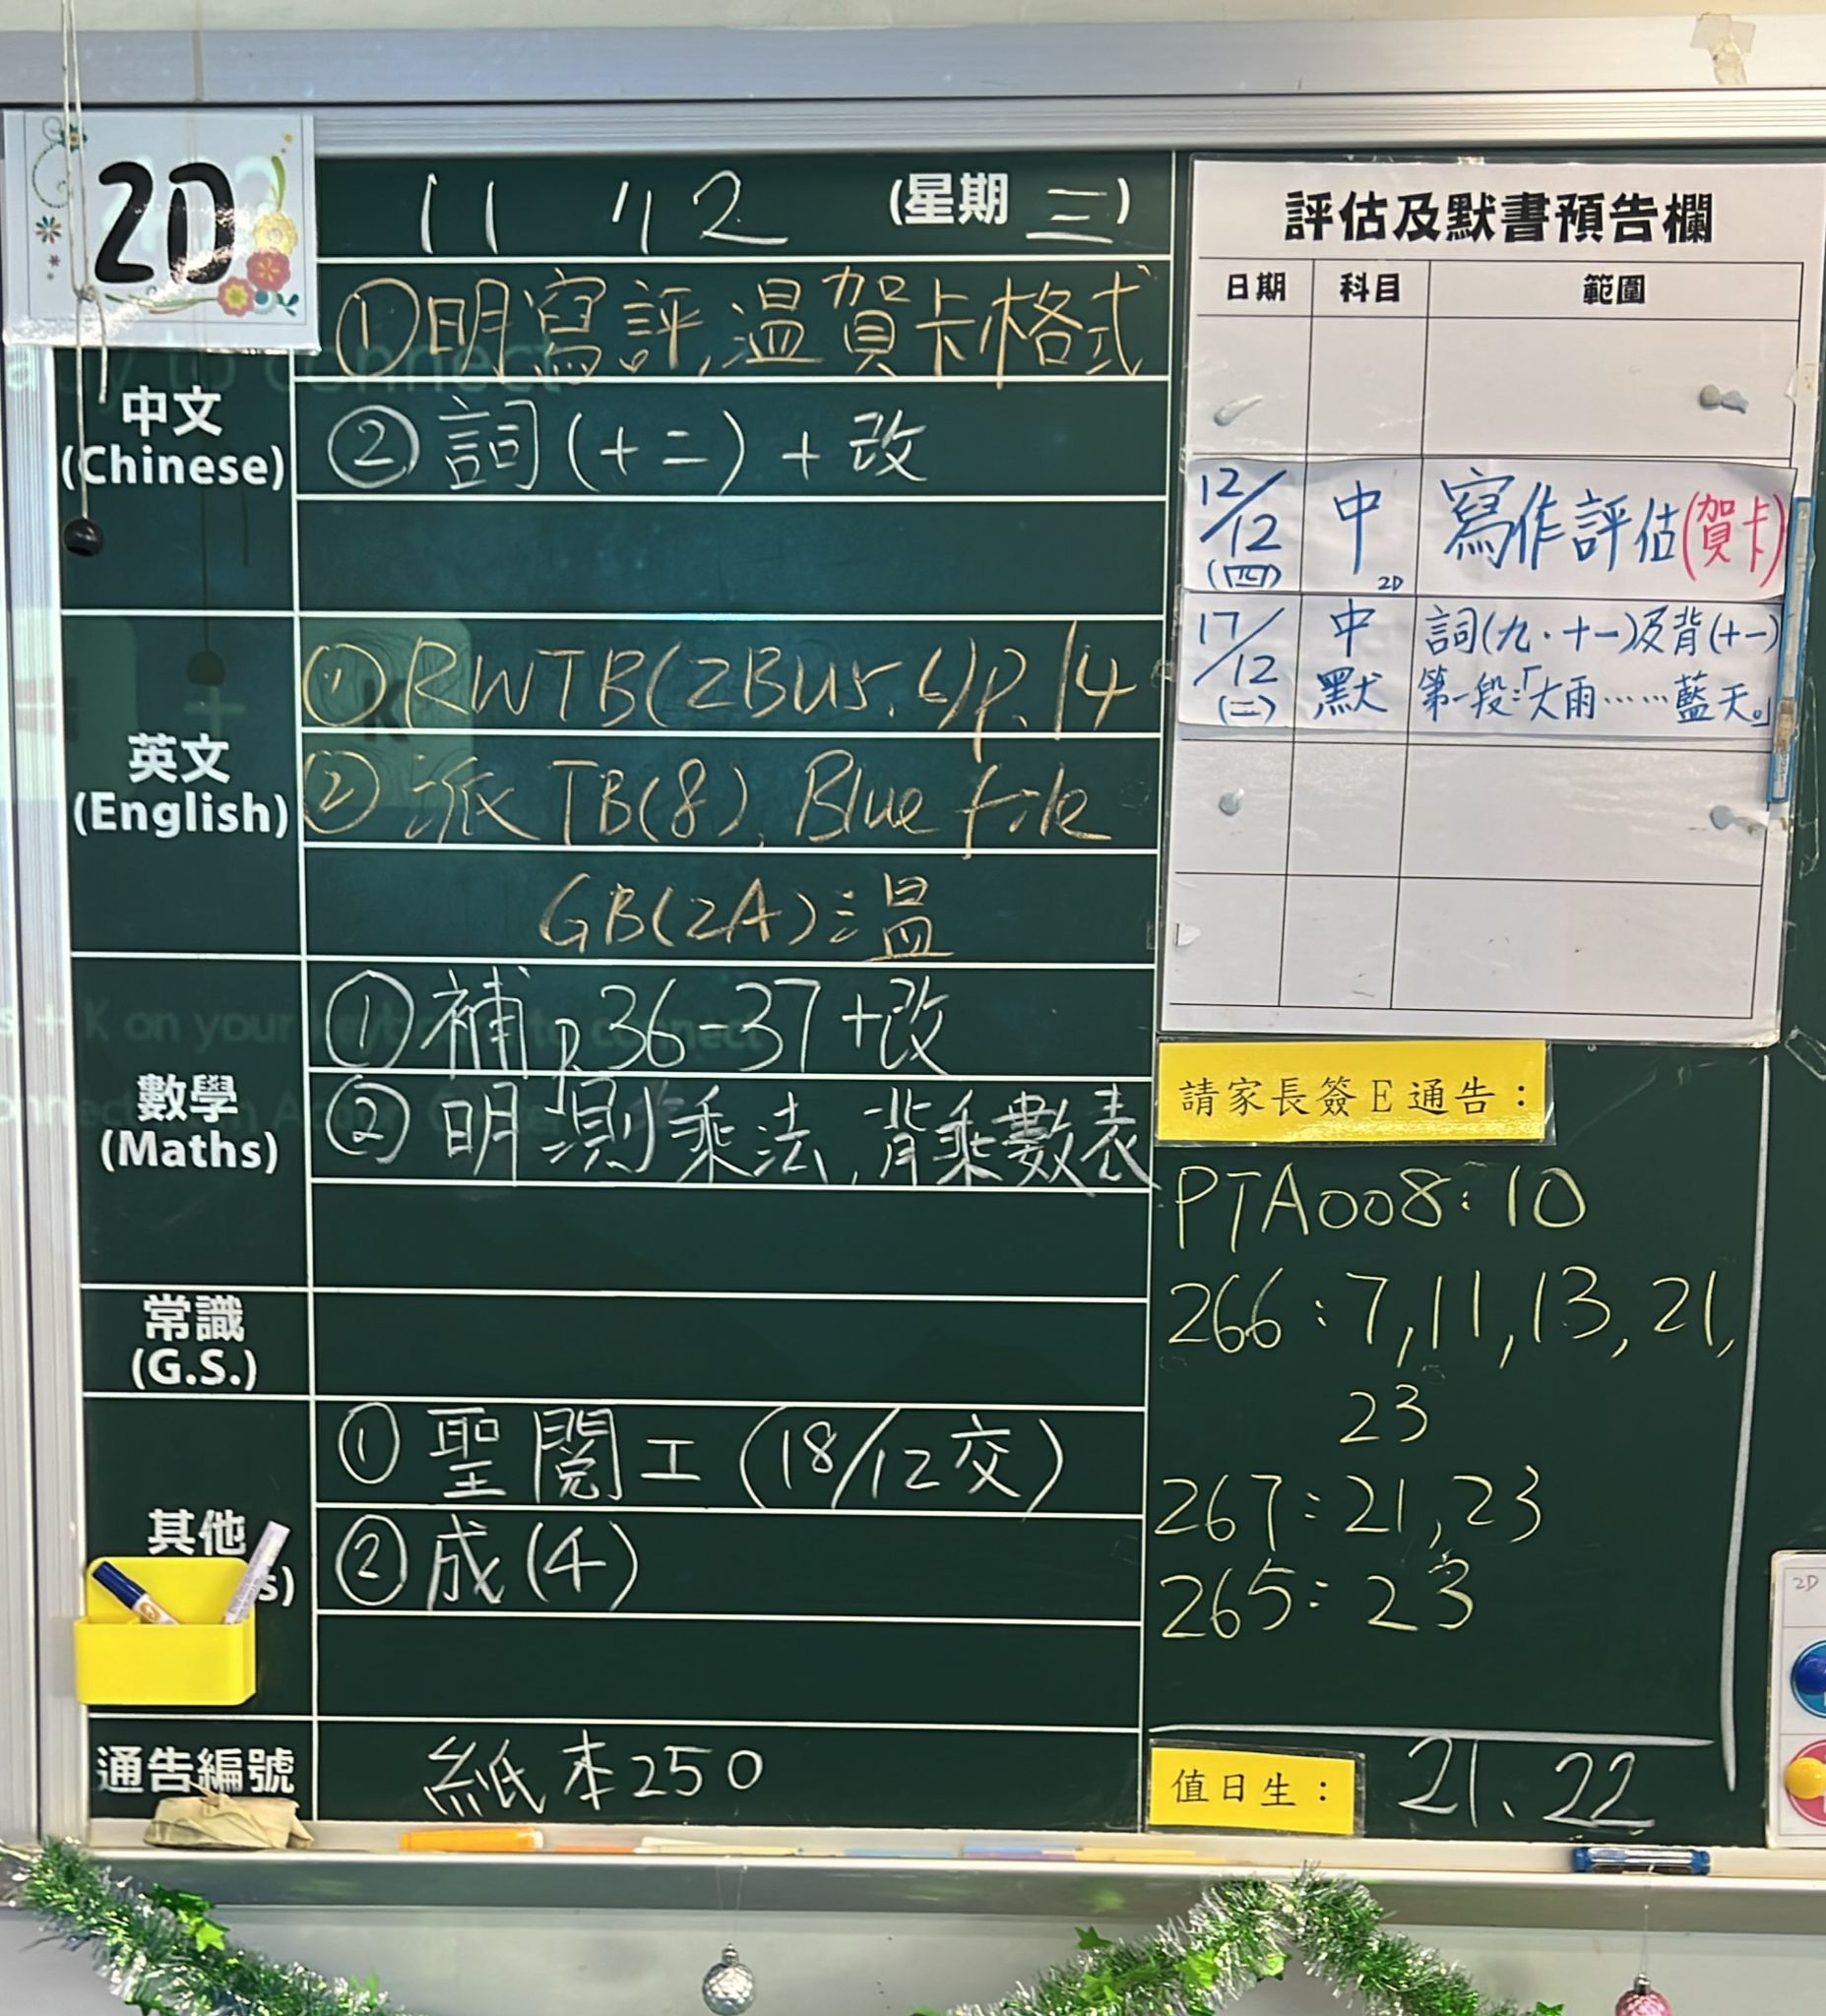 2D
11 12 (星期三)
中文
(Chinese)
①明寫評,溫賀卡格式
②詞(十二)+改
英文
(English)
①RWTB(2BU5.6)p.14
②派TB(8),Blue file
GB(2A):溫
數學
(Maths)
①補p.36-37+改
②明測乘法,背乘數表
常識
(G.S.)
其他
s)
①聖閱工(18/12交)
②成(4)
通告編號
紙本250
評估及默書預告欄
日期 科目 範圍
12/12(四) 中 2D 寫作評估(賀卡)
17/12(二) 中默 詞(九.十一)及背(十一)
第一段:「大雨……藍天。」
請家長簽E通告:
PTA008:10
266:7,11,13,21,
23
267:21,23
265:23
值日生: 21、22
2D